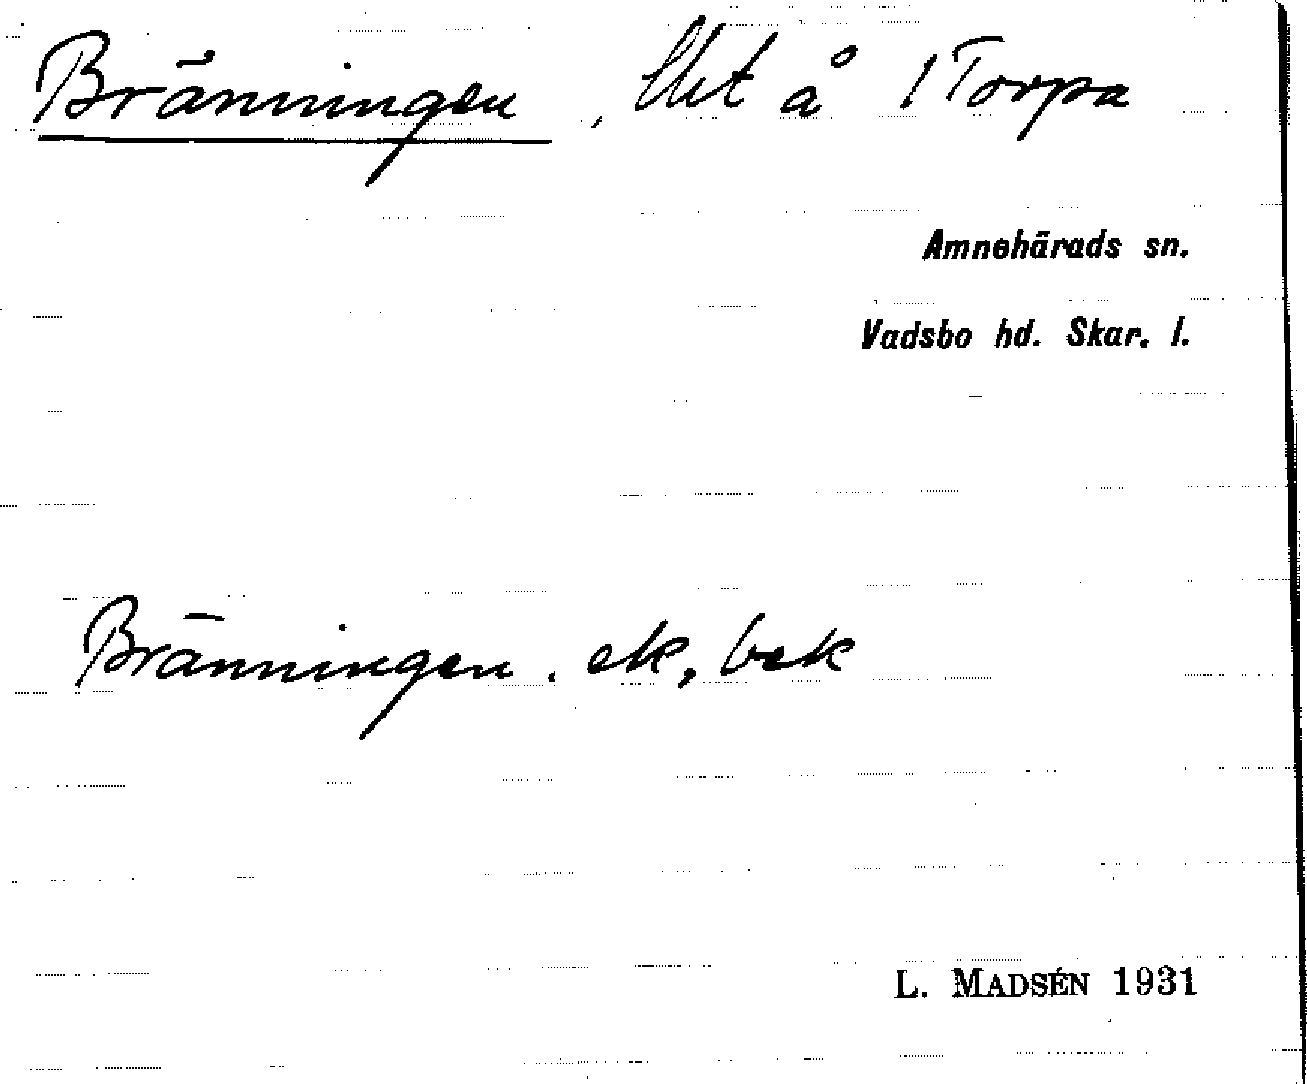 Bränningen, Utg å 1 Torpa
Amnehärads sn.
Vadsbo hd. Skar. l.
Bränningen. ek, bek
L. MADSÉN 1931